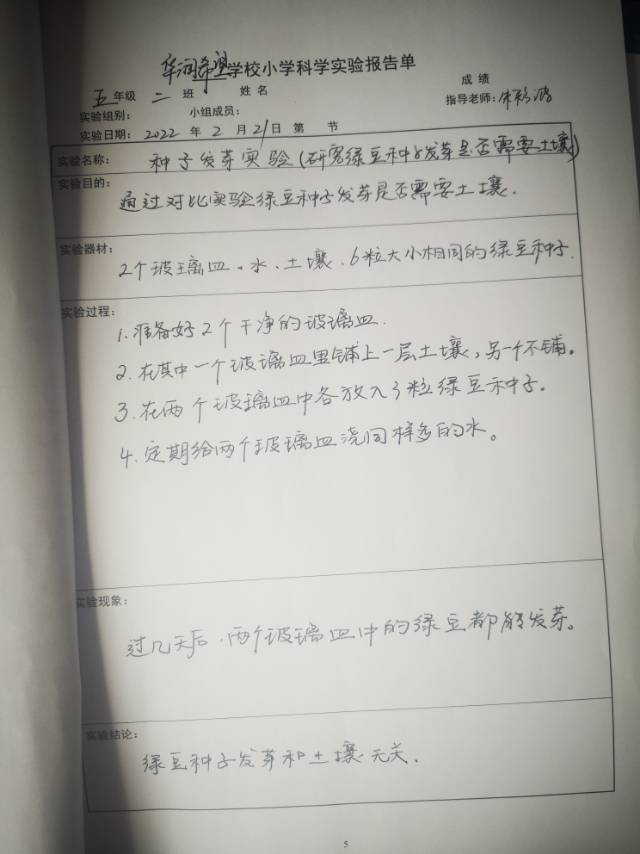 华润希望学校小学科学实验报告单
五年级 二 班 姓 名 成 绩
实验组别: 小组成员: 指导老师:
实验日期: 2022 年 2 月 21 日 第 节
实验名称: 种子发芽实验(研究绿豆种子发芽是否需要土壤)
实验目的:
通过对比实验绿豆种子发芽是否需要土壤.
实验器材:
2个玻璃皿、水、土壤、6粒大小相同的绿豆种子.
实验过程:
1.准备好2个干净的玻璃皿.
2.在其中一个玻璃皿里铺上一层土壤,另一个不铺。
3.在两个玻璃皿中各放入3粒绿豆种子。
4.定期给两个玻璃皿浇同样多的水。
实验现象:
过几天后,两个玻璃皿中的绿豆都能发芽。
实验结论:
绿豆种子发芽和土壤无关.
5